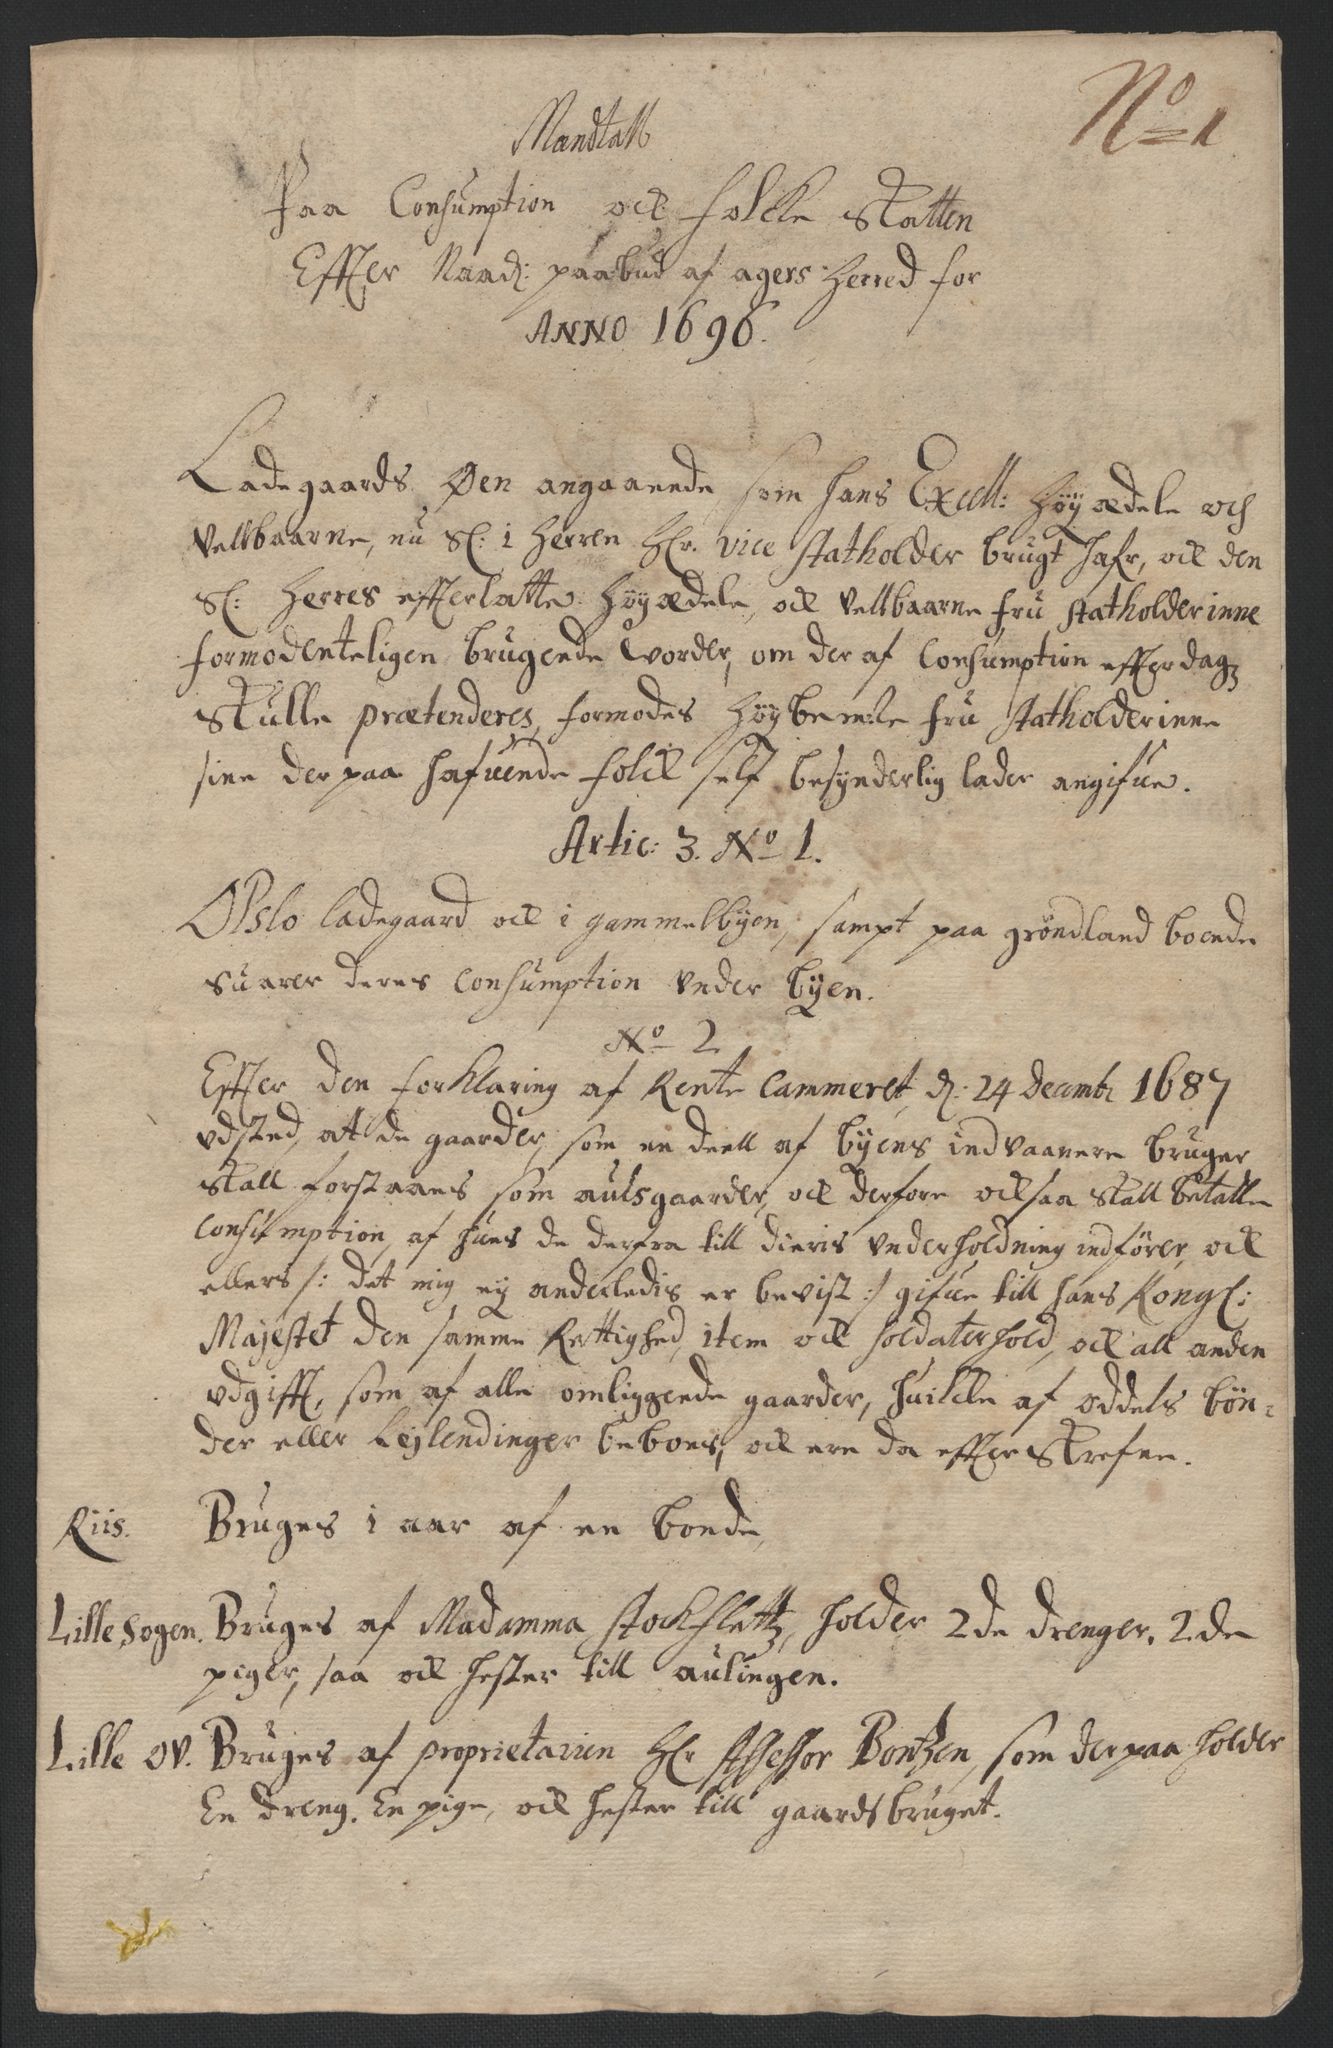 No 1
Mandtall
Paa Consumption ock folcke skatten
Effter Naad: paabud af agers herred for
ANNO 1696.
Ladegaards Øen angaaende som hans Excell: höÿædele och
velbaarne, nu Sl: i herren Hr. vice statholder brugt hafr, ock den
Sl: herres effterlatte höÿædele, ock velbaarne fru statholderinne
formodenteligen brugende vorder, om der af Consumption effterdags
skulle prætenderes, formodes höÿbemte fru statholderinne
sine der paa hafuende folck self besÿnderlig lader angifue.
Artic: 3. No 1.
Opslo ladegaard ock i gammelbÿen, sampt paa gröndland boende
suarer deres Consumption under bÿen.
No 2
Effter den forklaring af Rente Cammeret, d: 24 decemb: 1687
udsted, at de gaarder, som en deell af bÿens indvaanere bruger
skall forstaaes som aulsgaarder, ock derfore ocksaa skall betalle
Consumption, af hues de derfra till dieris underholdning indfører, ock
ellers /: det mig eÿ anderledis er bevist :/ gifue till hans Kongl:
Majestet den samme Rettighed, item ock soldaterhold, ock all anden
udgifft, som af alle omliggende gaarder, huilcke af oddels bön-
der eller leÿlendinger beboes, ock ere da effterskrefne.
Riis. Bruges i aar af en bonde,
Lille Sogen. Bruges af Madamma Stockfletz, holder 2de drenger, 2de
piger, saa ock hester till aulingen.
Lille ov. Bruges af proprietarien Hr Assessor Bontzen, som derpaa holder
En dreng, En pige, ock hester till gaardsbruget.